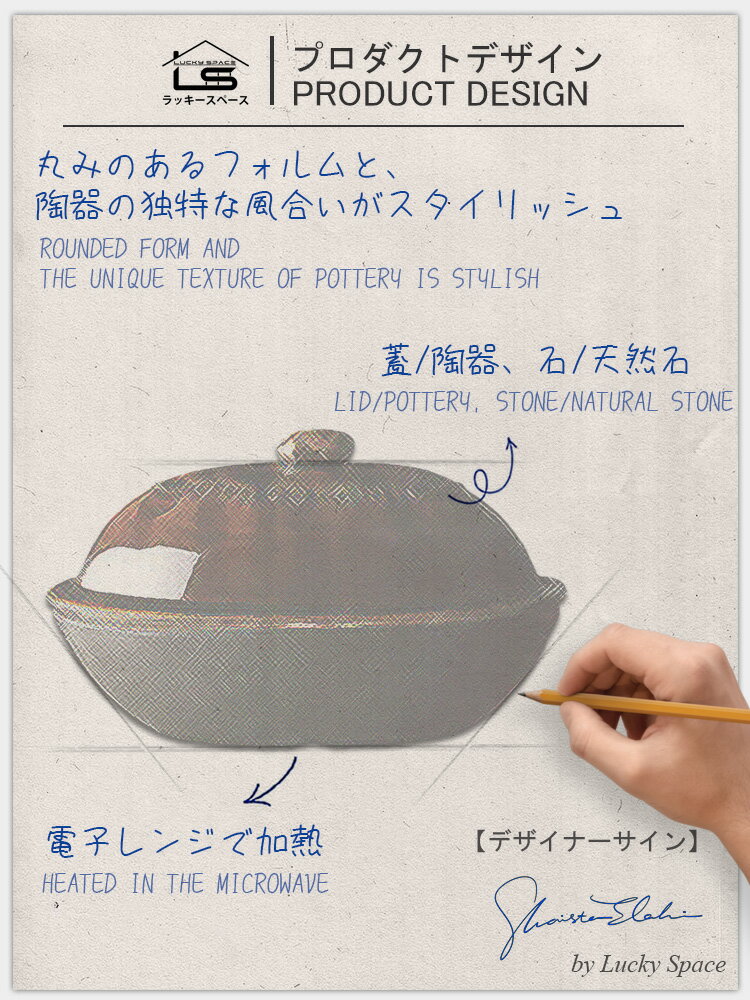 LUCKY SPACE
LS
ラッキースペース
プロダクトデザイン
PRODUCT DESIGN
丸みのあるフォルムと、
陶器の独特な風合いがスタイリッシュ
ROUNDED FORM AND
THE UNIQUE TEXTURE OF POTTERY IS STYLISH
蓋/陶器、石/天然石
LID/POTTERY, STONE/NATURAL STONE
電子レンジで加熱
HEATED IN THE MICROWAVE
【デザイナーサイン】
by Lucky Space